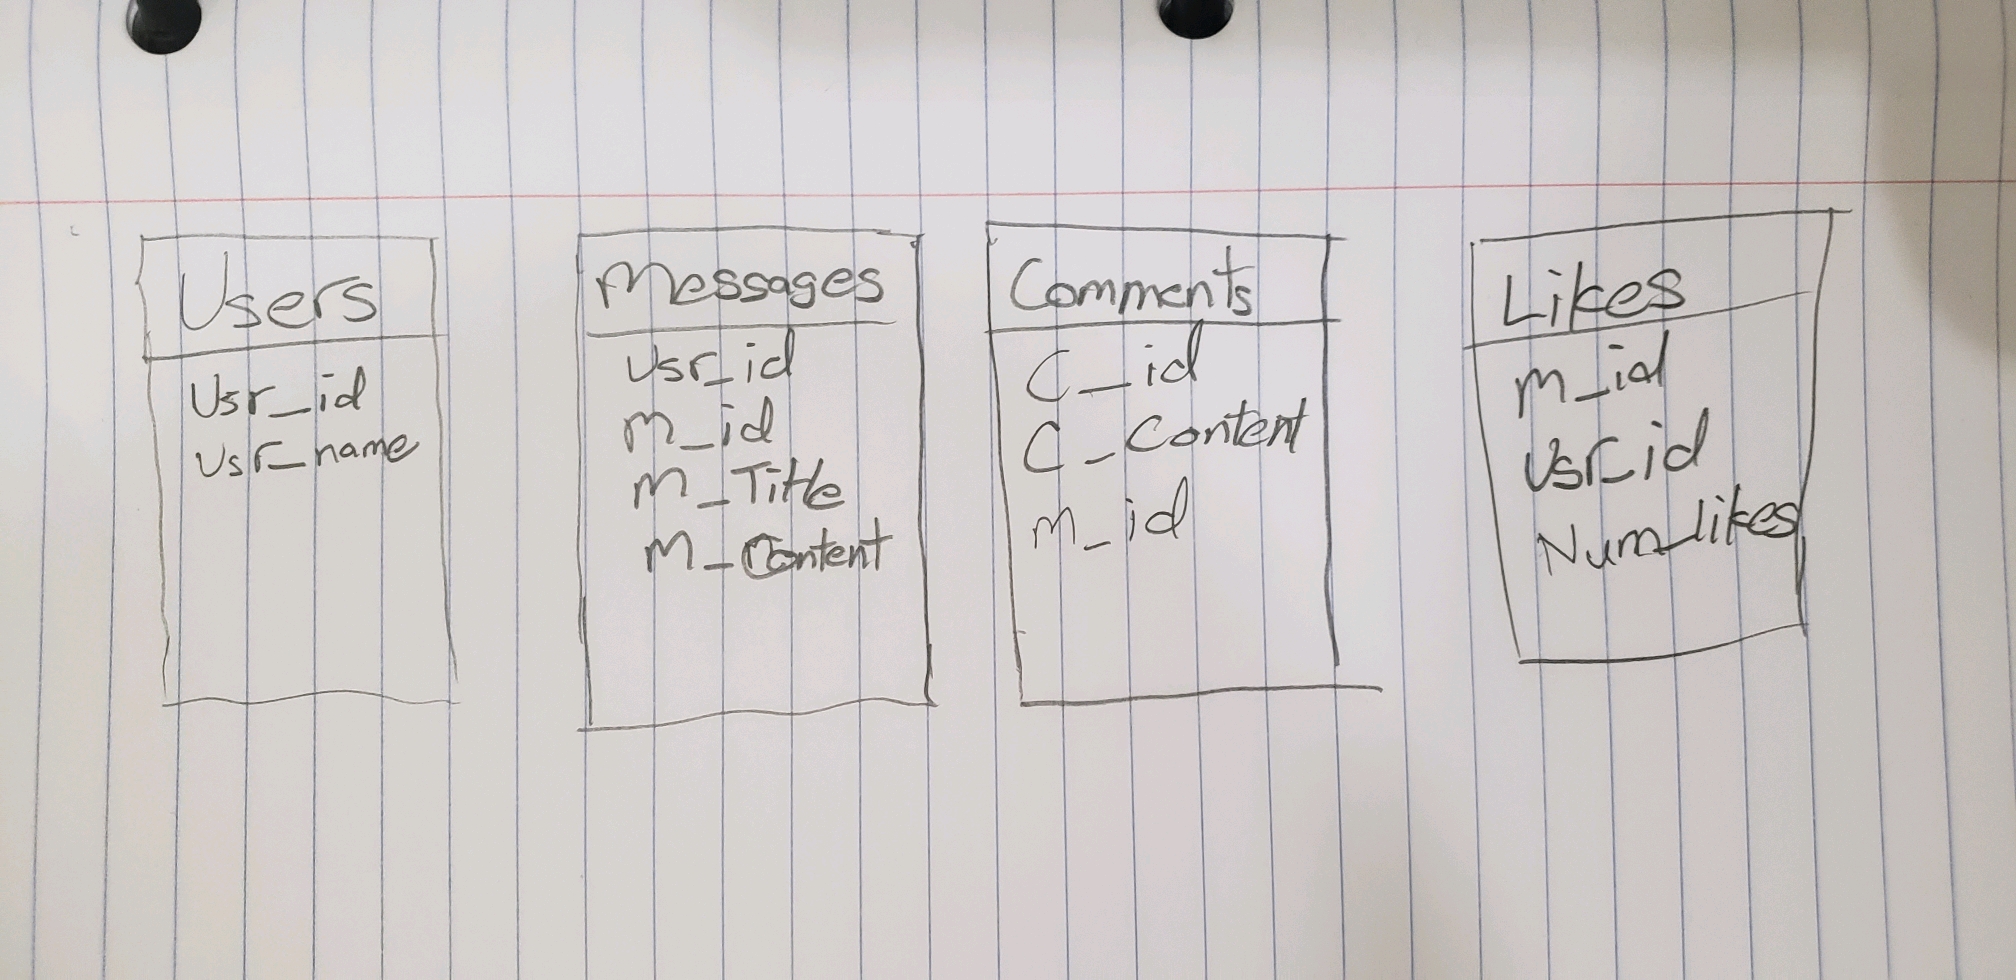 Users
Usr_id
Usr_name
Messages
Usr_id
M_id
M_Title
M_Content
Comments
C_id
C_Content
M_id
Likes
M_id
Usr_id
Num_likes